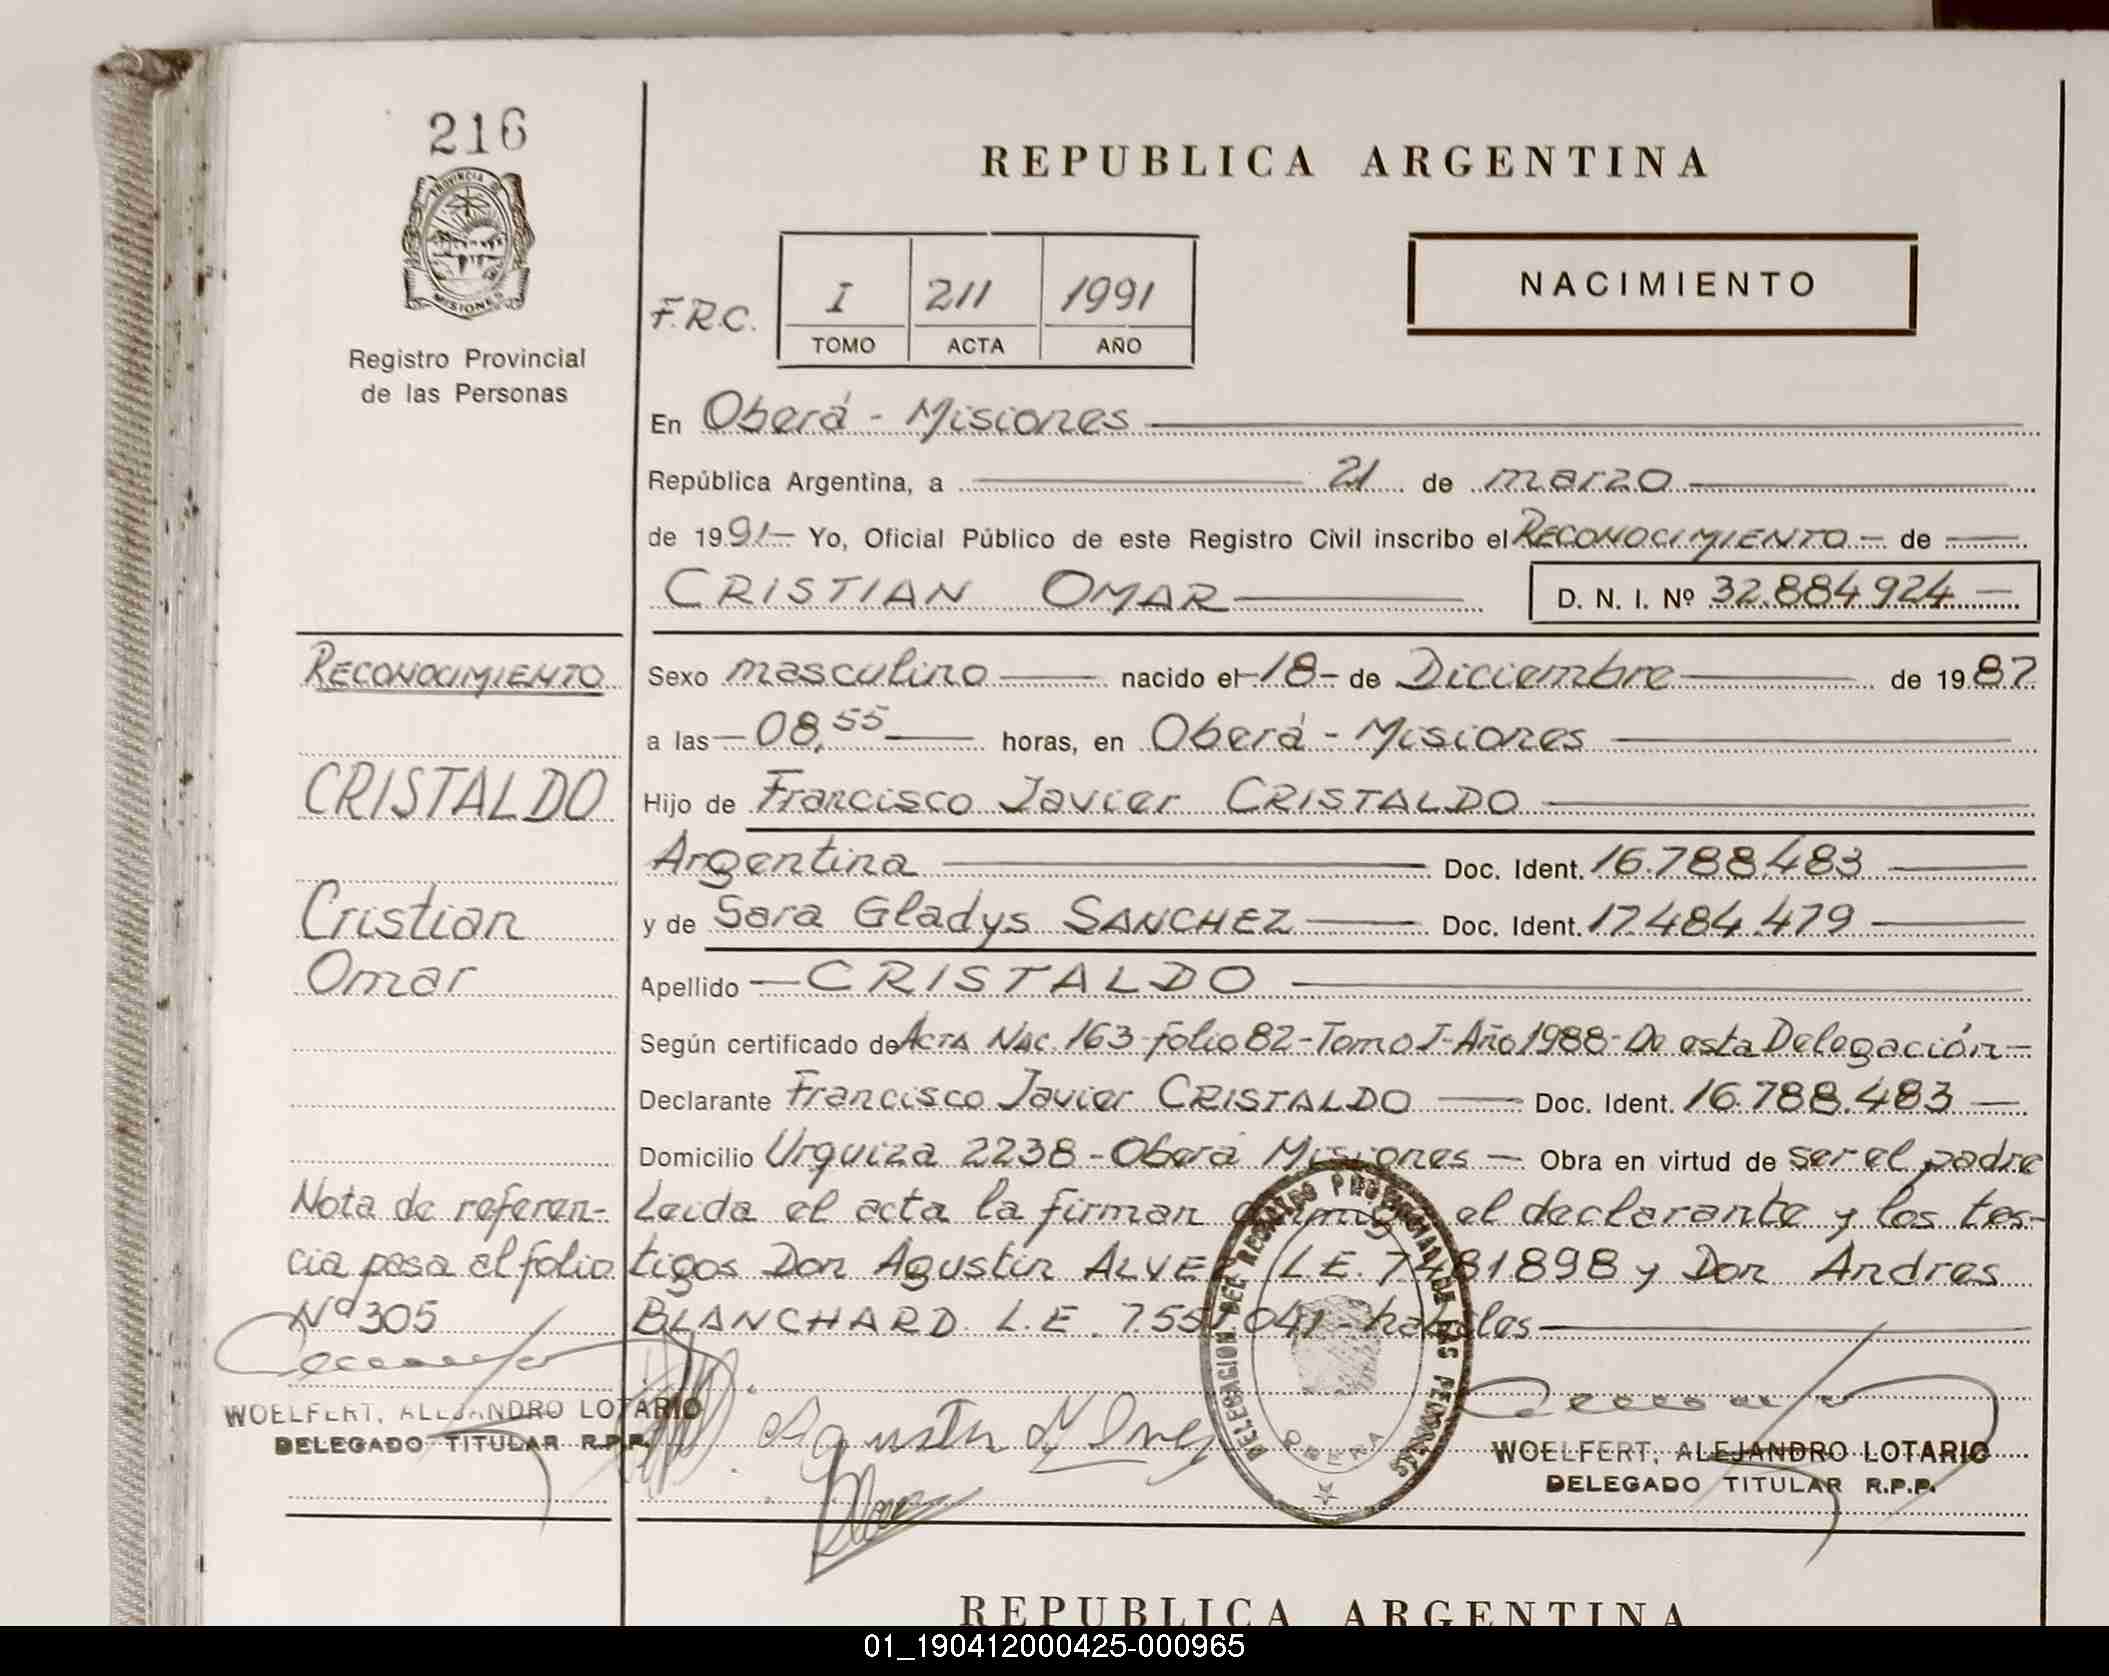 216
PROVINCIA D
MISIONES
Registro Provincial
de las Personas
REPUBLICA ARGENTINA
F.R.C.
I 211 1991
TOMO ACTA AÑO
NACIMIENTO
En Oberá - Misiones
República Argentina, a 21 de marzo
de 1991- Yo, Oficial Público de este Registro Civil inscribo el RECONOCIMIENTO - de
CRISTIAN OMAR
D. N. I. Nº 32.884.924
Sexo masculino nacido el -18- de Diciembre de 1987
a las 08,55 horas, en Oberá - Misiones
Hijo de Francisco Javier CRISTALDO
Argentina Doc. Ident. 16.788.483
y de Sara Gladys SANCHEZ Doc. Ident. 17.484.479
Apellido - CRISTALDO
Según certificado de Acta Nac. 163-folio 82-Tomo I-Año 1988-De esta Delegación-
Declarante Francisco Javier CRISTALDO Doc. Ident. 16.788.483
Domicilio Urquiza 2238-Oberá Misiones - Obra en virtud de ser el padre
Leida el acta la firman el declarante y los tes-
tigos Don Agustin L.E. 7481898 y Don Andres
BLANCHARD L.E. 7.551.041 - habiles
RECONOCIMIENTO
CRISTALDO
Cristian
Omar
Nota de referen-
cia pasa al folio
Nº 305
WOELFERT, ALEJANDRO LOTARIO
DELEGADO TITULAR R.P.P.
Agustin
DELEGACION DEL REGISTRO PROVINCIAL DE LAS PERSONAS
OBERA
WOELFERT, ALEJANDRO LOTARIO
DELEGADO TITULAR R.P.P.
REPUBLICA ARGENTINA
01_190412000425-000965